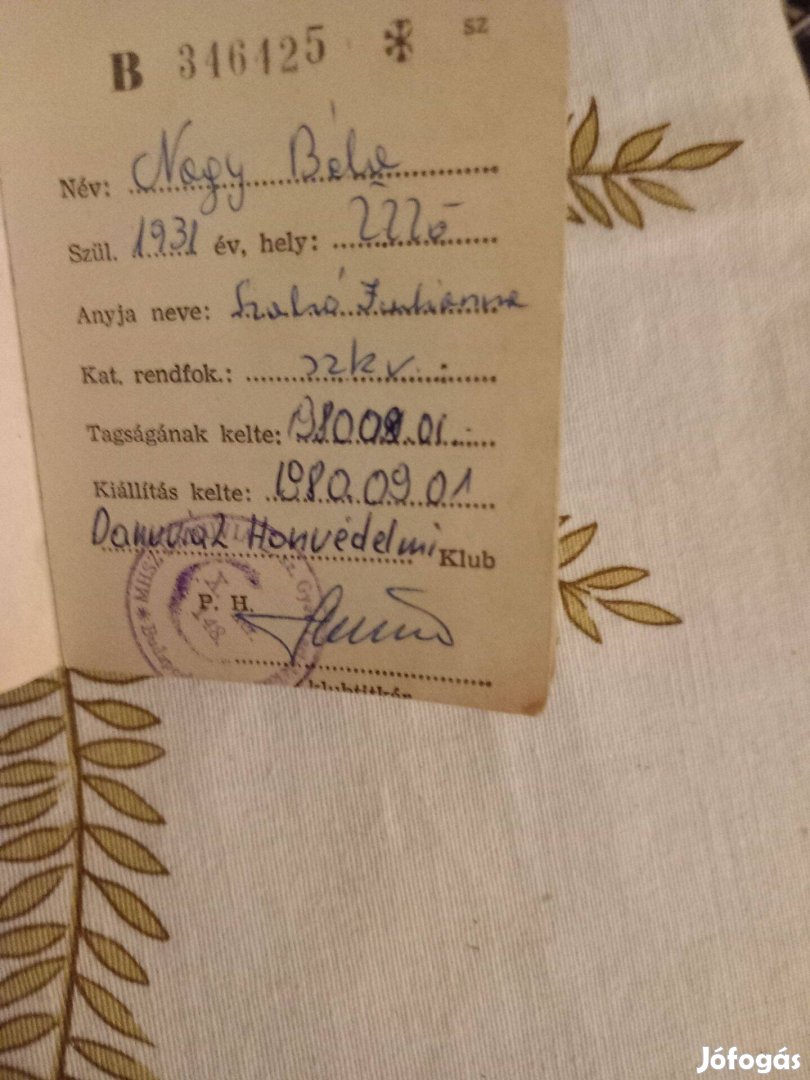 B 346425 * sz
Név: Nagy Béla
Szül. 1931 év, hely: Üllő
Anyja neve: Szabó Julianna
Kat. rendfok.: szkv.
Tagságának kelte: 1980.09.01.
Kiállítás kelte: 1980.09.01
Danuvia 2 Honvédelmi Klub
P. H.
klubtitkár
Jófogás